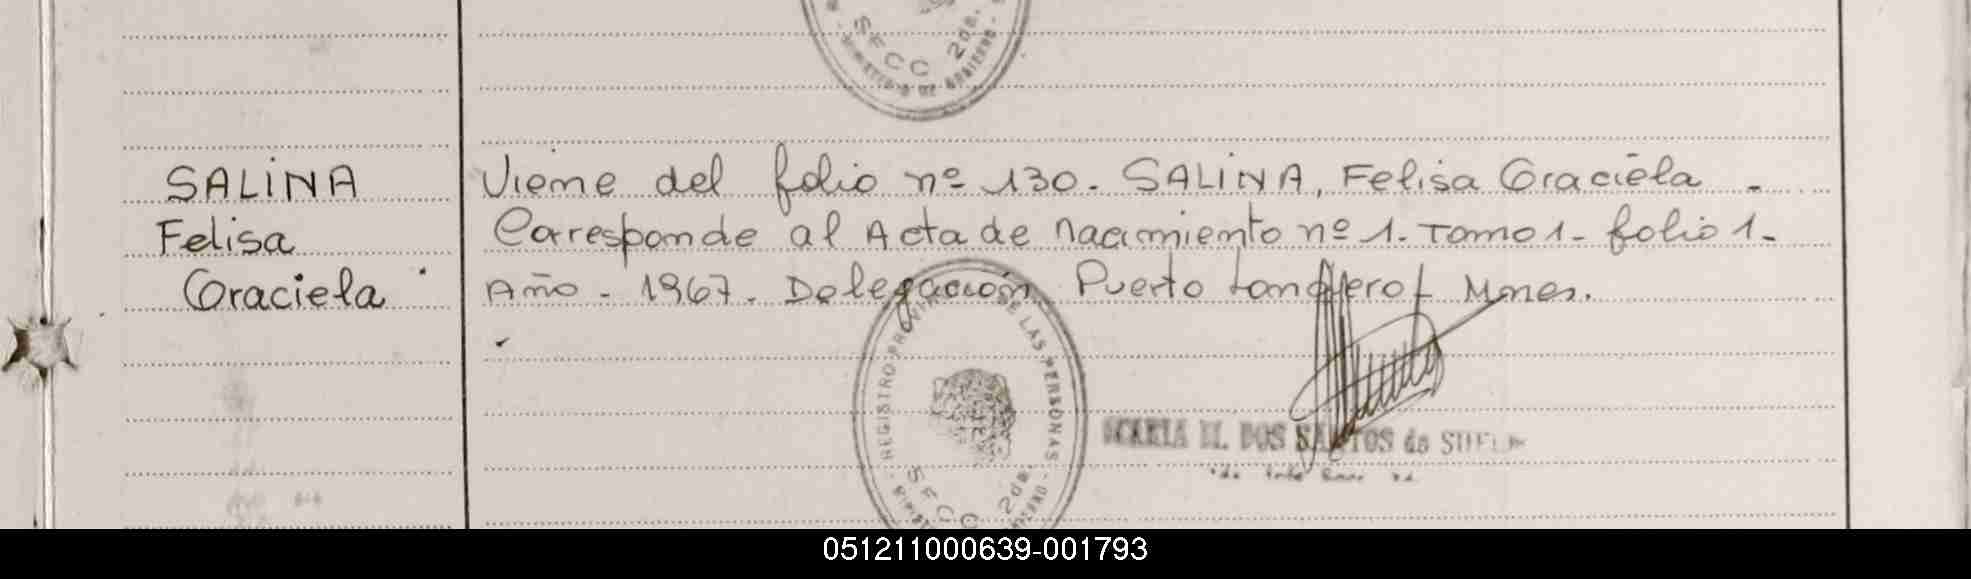 SALINA
Felisa
Graciela
Viene del folio nº 130. SALINA, Felisa Graciela -
Corresponde al Acta de nacimiento nº 1. Tomo 1- folio 1-
Año - 1967. Delegación Puerto Londero Mnes.
SECC 2da.
MINISTERIO DE GOBIERNO
REGISTRO PROVINCIAL DE LAS PERSONAS
SECC 2da.
DOS SANTOS de
051211000639-001793